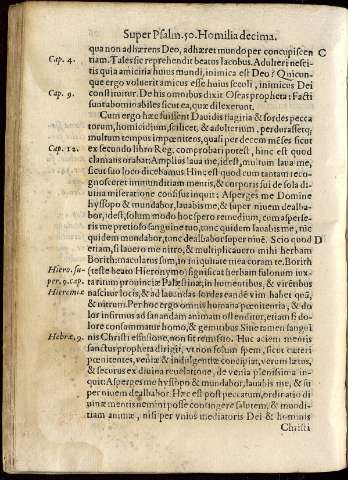 Super Psalm. 50. Homilia decima.
qua non adhærens Deo, adhæret mundo per concupiscen C
Cap. 4. tiam. Tales sic reprehendit beatus Iacobus. Adulteri nesci-
tis quia amicitia huius mundi, inimica est Deo? Quicun-
que ergo voluerit amicus esse huius seculi, inimicus Dei
Cap. 9. constituitur. De his omnibus dixit Oseas propheta: Facti
sunt abominabiles sicut ea, quæ dilexerunt.
Cum ergo hæc fuissent Dauidis flagitia & sordes pecca
torum, homicidium, scilicet, & adulterium, perdurassetq;
multum tempus impœnitens, quasi per decem mēses sicut
Cap. 12. ex secundo libro Reg. comprobari potest, hinc est quod
clamans orabat: Amplius laua me, idest, multum laua me,
sicut suo loco dicebamus. Hinc est quod cum tantam reco-
gnosceret immunditiam mentis, & corporis sui de sola di-
uina miseratione consisus inquit: Asperges me Domine
hyssopo & mundabor, lauabis me, & super niuem dealba-
bor, idest, solum modo hoc spero remedium, cum asperse-
ris me pretioso sanguine tuo, tunc quidem lauabis me, tūc
quidem mundabor, tunc dealbabor super niuē. Scio quod D
etiam, si lauero me nitro, & multiplicauero mihi herbam
Borith: maculatus sum, in iniquitate mea coram te. Borith
Hiero. su- (teste beato Hieronymo) significat herbam fullonum iux-
per. 9. cap. ta ritum prouinciæ Palæstinæ, in humentibus, & virētibus
Hieremiæ nascitur locis, & ad lauandas sordes eandē vim habet quā,
& nitrum. Per hoc ergo omnis humana pœnitentia, & do-
lor infirmus ad sanandam animam ostenditur, etiam si do-
lore consummatur homo, & gemitibus. Sine tamen sangui
Hebræ. 9. nis Christi effusione, non fit remissio. Huc aciem mentis
sanctus propheta dirigit, vt non solum spem, sicut cæteri
pœnitentes, veniæ & indulgentiæ concipiat, verum lætus,
& securus ex diuina reuelatione, de venia plenissima in-
quit: Asperges me hyssopo & mundabor, lauabis me, & su
per niuem dealbabor. Hæc est post peccatum, ordinatio di
uinæ mentis nemini posse contingere salutem, & mundi-
tiam animæ, nisi per vnius mediatoris Dei & hominis
Christi